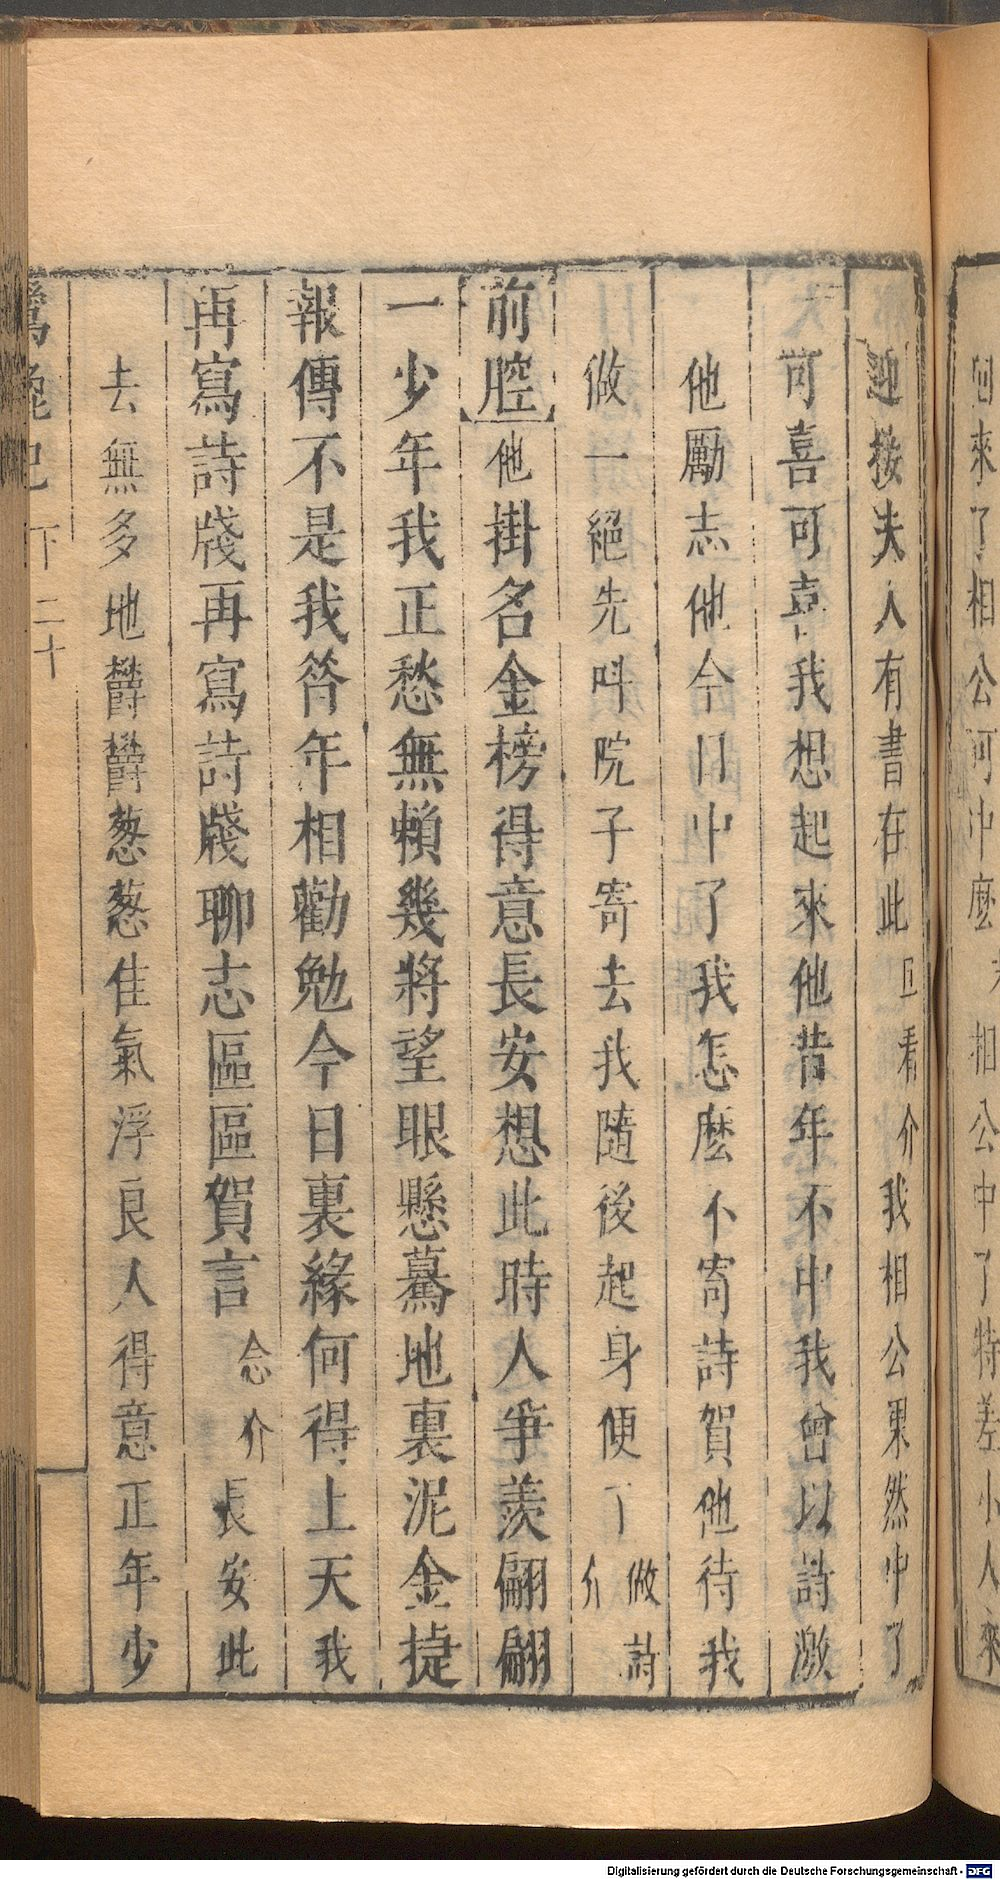 來了相公可中麽 相公中了特差小人來
迎接夫人有書在此 旦看介 我相公果然中了
可喜可喜我想起來他昔年不中我曾以詩激
他勵志他今日中了我怎麽不寄詩賀他待我
做一絕先呌院子寄去我隨後起身便了 做詩介
前腔 他掛名金榜得意長安想此時人爭羨翩翩
一少年我正愁無賴幾將望眼懸驀地裏泥金捷
報傳不是我筲年相勸勉今日裏緣何得上天我
再寫詩牋再寫詩牋聊志區區賀言 念介 長安此
去無多地欝欝葱葱佳氣浮良人得意正年少
記 下 二十
Digitalisierung gefördert durch die Deutsche Forschungsgemeinschaft - DFG